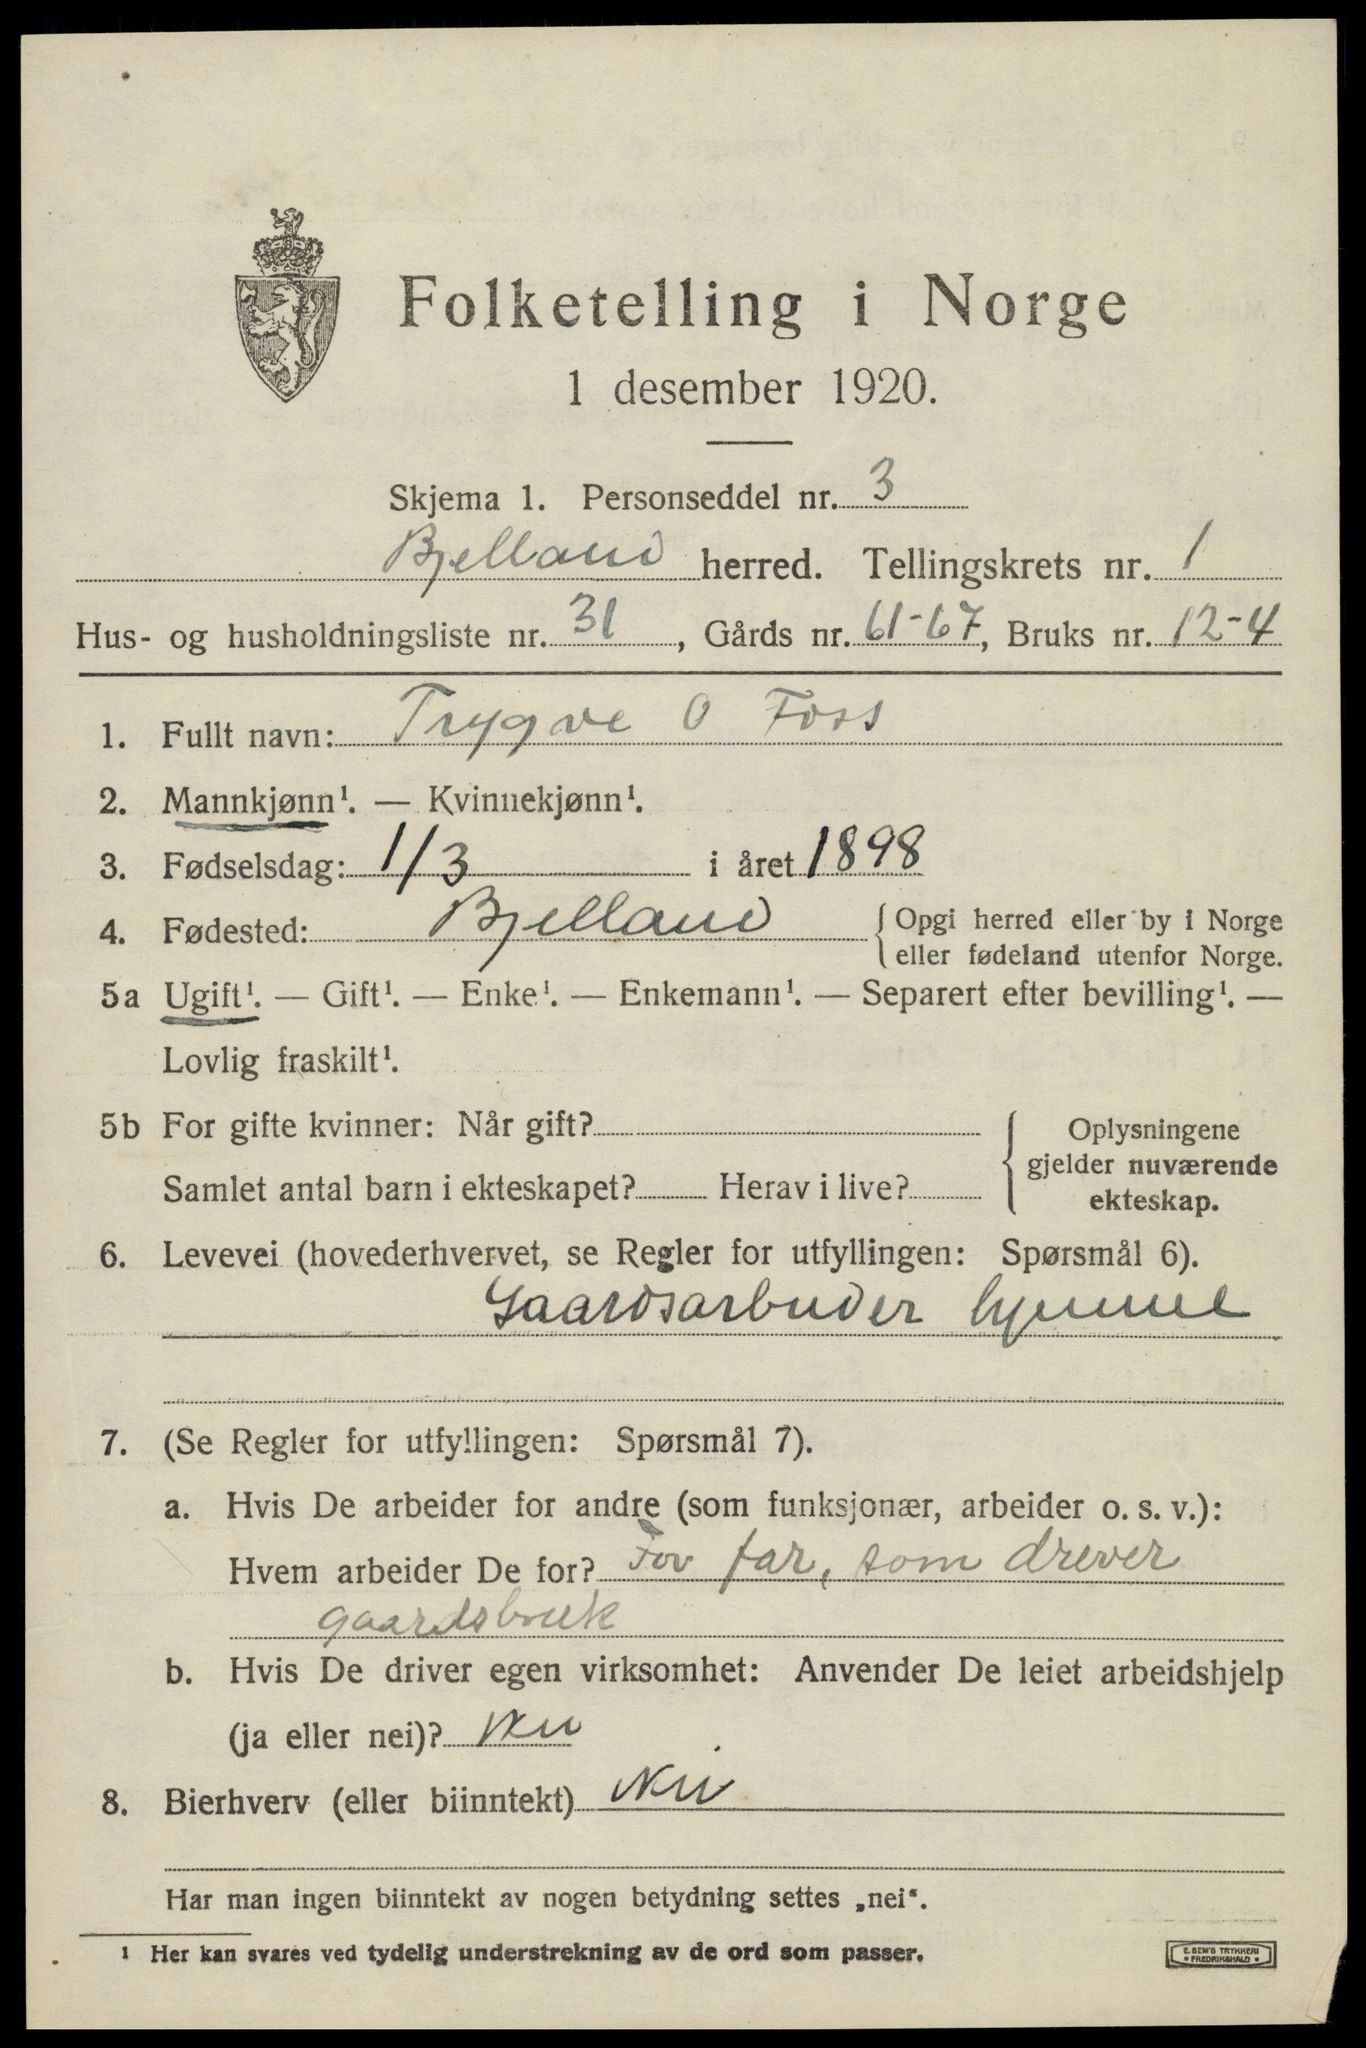 Folketelling i Norge
1 desember 1920.
Skjema 1. Personseddel nr. 3
Bjelland herred. Tellingskrets nr. 1
Hus- og husholdningsliste nr. 31, Gårds nr. 61-67, Bruks nr. 12-4
1. Fullt navn: Trygve O Foss
2. Mannkjønn¹. — Kvinnekjønn¹.
3. Fødselsdag: 1/3 i året 1898
4. Fødested: Bjelland {Opgi herred eller by i Norge
eller fødeland utenfor Norge.
5a Ugift¹. — Gift¹. — Enke¹. — Enkemann¹. — Separert efter bevilling¹. —
Lovlig fraskilt¹.
5b For gifte kvinner: Når gift?
Samlet antal barn i ekteskapet? Herav i live?
Oplysningene
gjelder nuværende
ekteskap.
6. Levevei (hovederhvervet, se Regler for utfyllingen: Spørsmål 6).
Gaardsarbeider hjemme
7. (Se Regler for utfyllingen: Spørsmål 7).
a. Hvis De arbeider for andre (som funksjonær, arbeider o. s. v.):
Hvem arbeider De for? For far, som drever
gaardsbruk
b. Hvis De driver egen virksomhet: Anvender De leiet arbeidshjelp
(ja eller nei)? Nei
8. Bierhverv (eller biinntekt) Nei
Har man ingen biinntekt av nogen betydning settes „nei“.
¹ Her kan svares ved tydelig understrekning av de ord som passer.
E. SEM'S TRYKKERI
• FREDRIKSHALD •